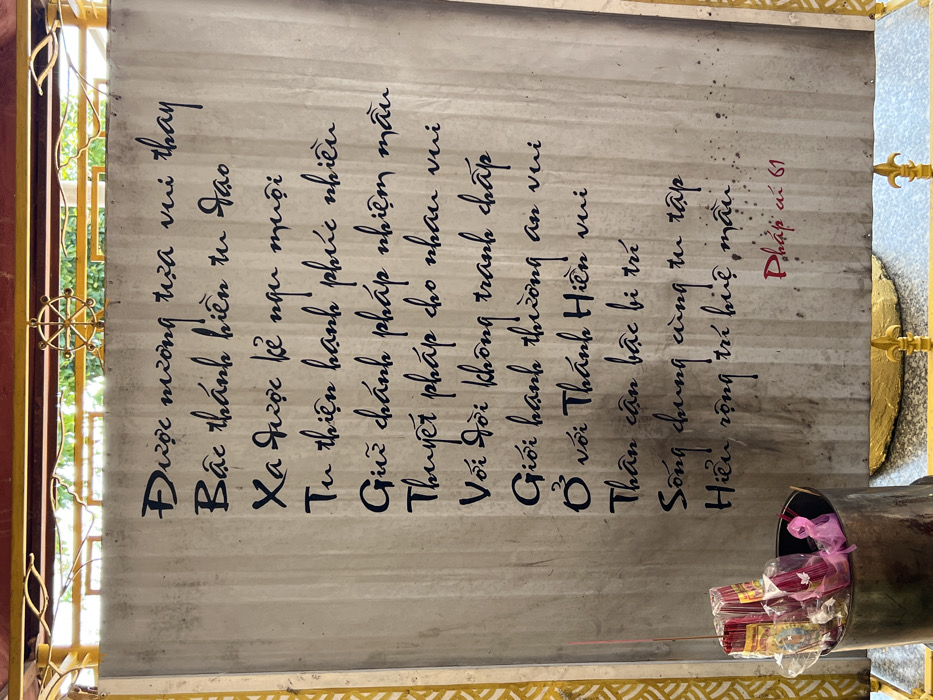 Được nương tựa vui thay
Bậc thánh hiền tu đạo
Xa được kẻ ngu muội
Tu thiện hạnh phúc nhiều
Giữ chánh pháp nhiệm mầu
Thuyết pháp cho nhau vui
Với đời không tranh chấp
Giới hạnh thường an vui
Ở với Thánh Hiền vui
Thân cận bậc bi trí
Sống chung cùng tu tập
Hiểu rộng trí huệ mầu
Pháp cú 61